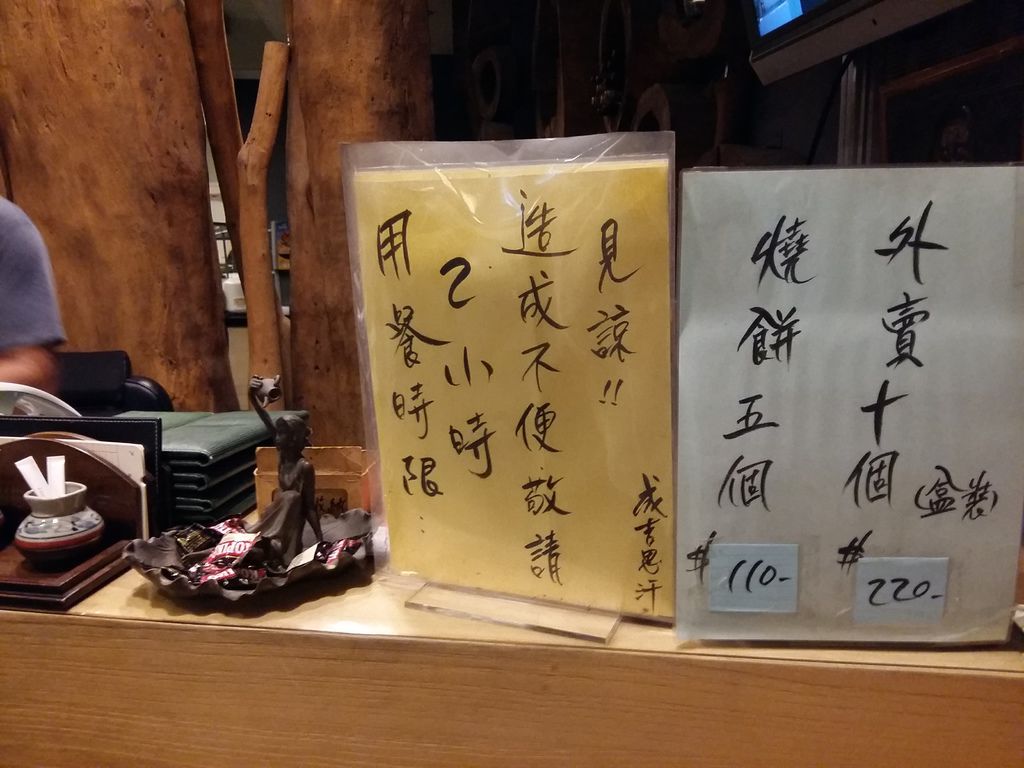 用餐時限:
2小時
造成不便敬請
見諒!!
成吉思汗
燒餅五個
$110-
外賣十個
(盒裝)
$220-